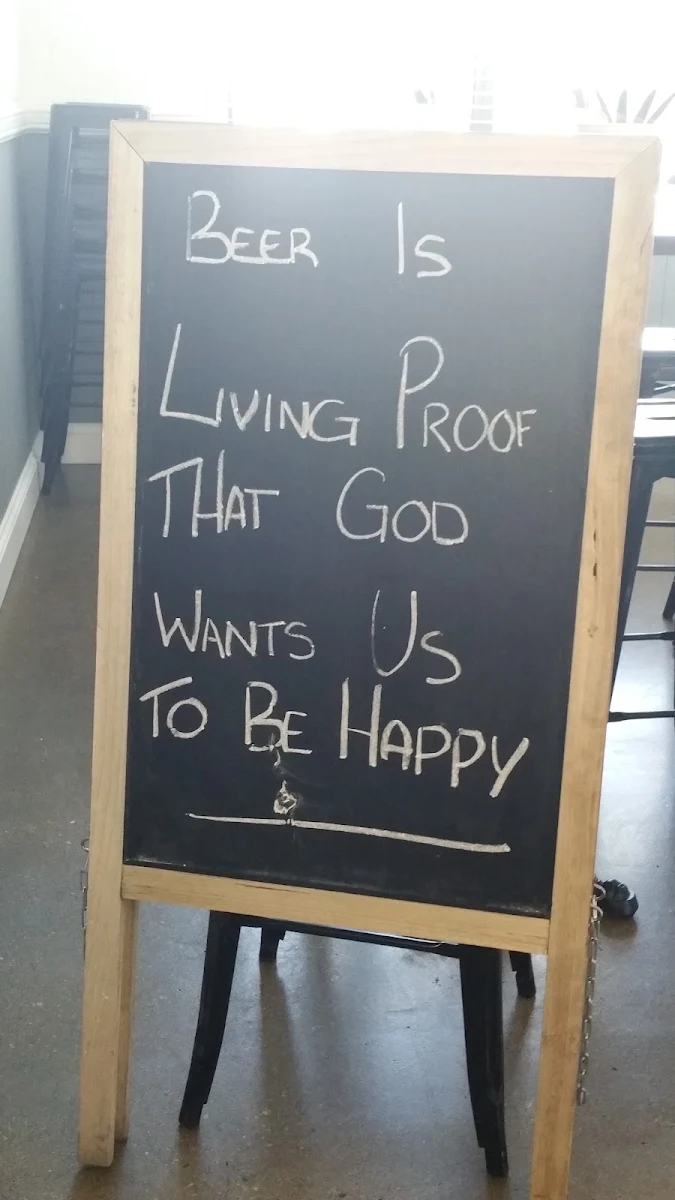 BEER IS
LIVING PROOF
THAT GOD
WANTS US
TO BE HAPPY